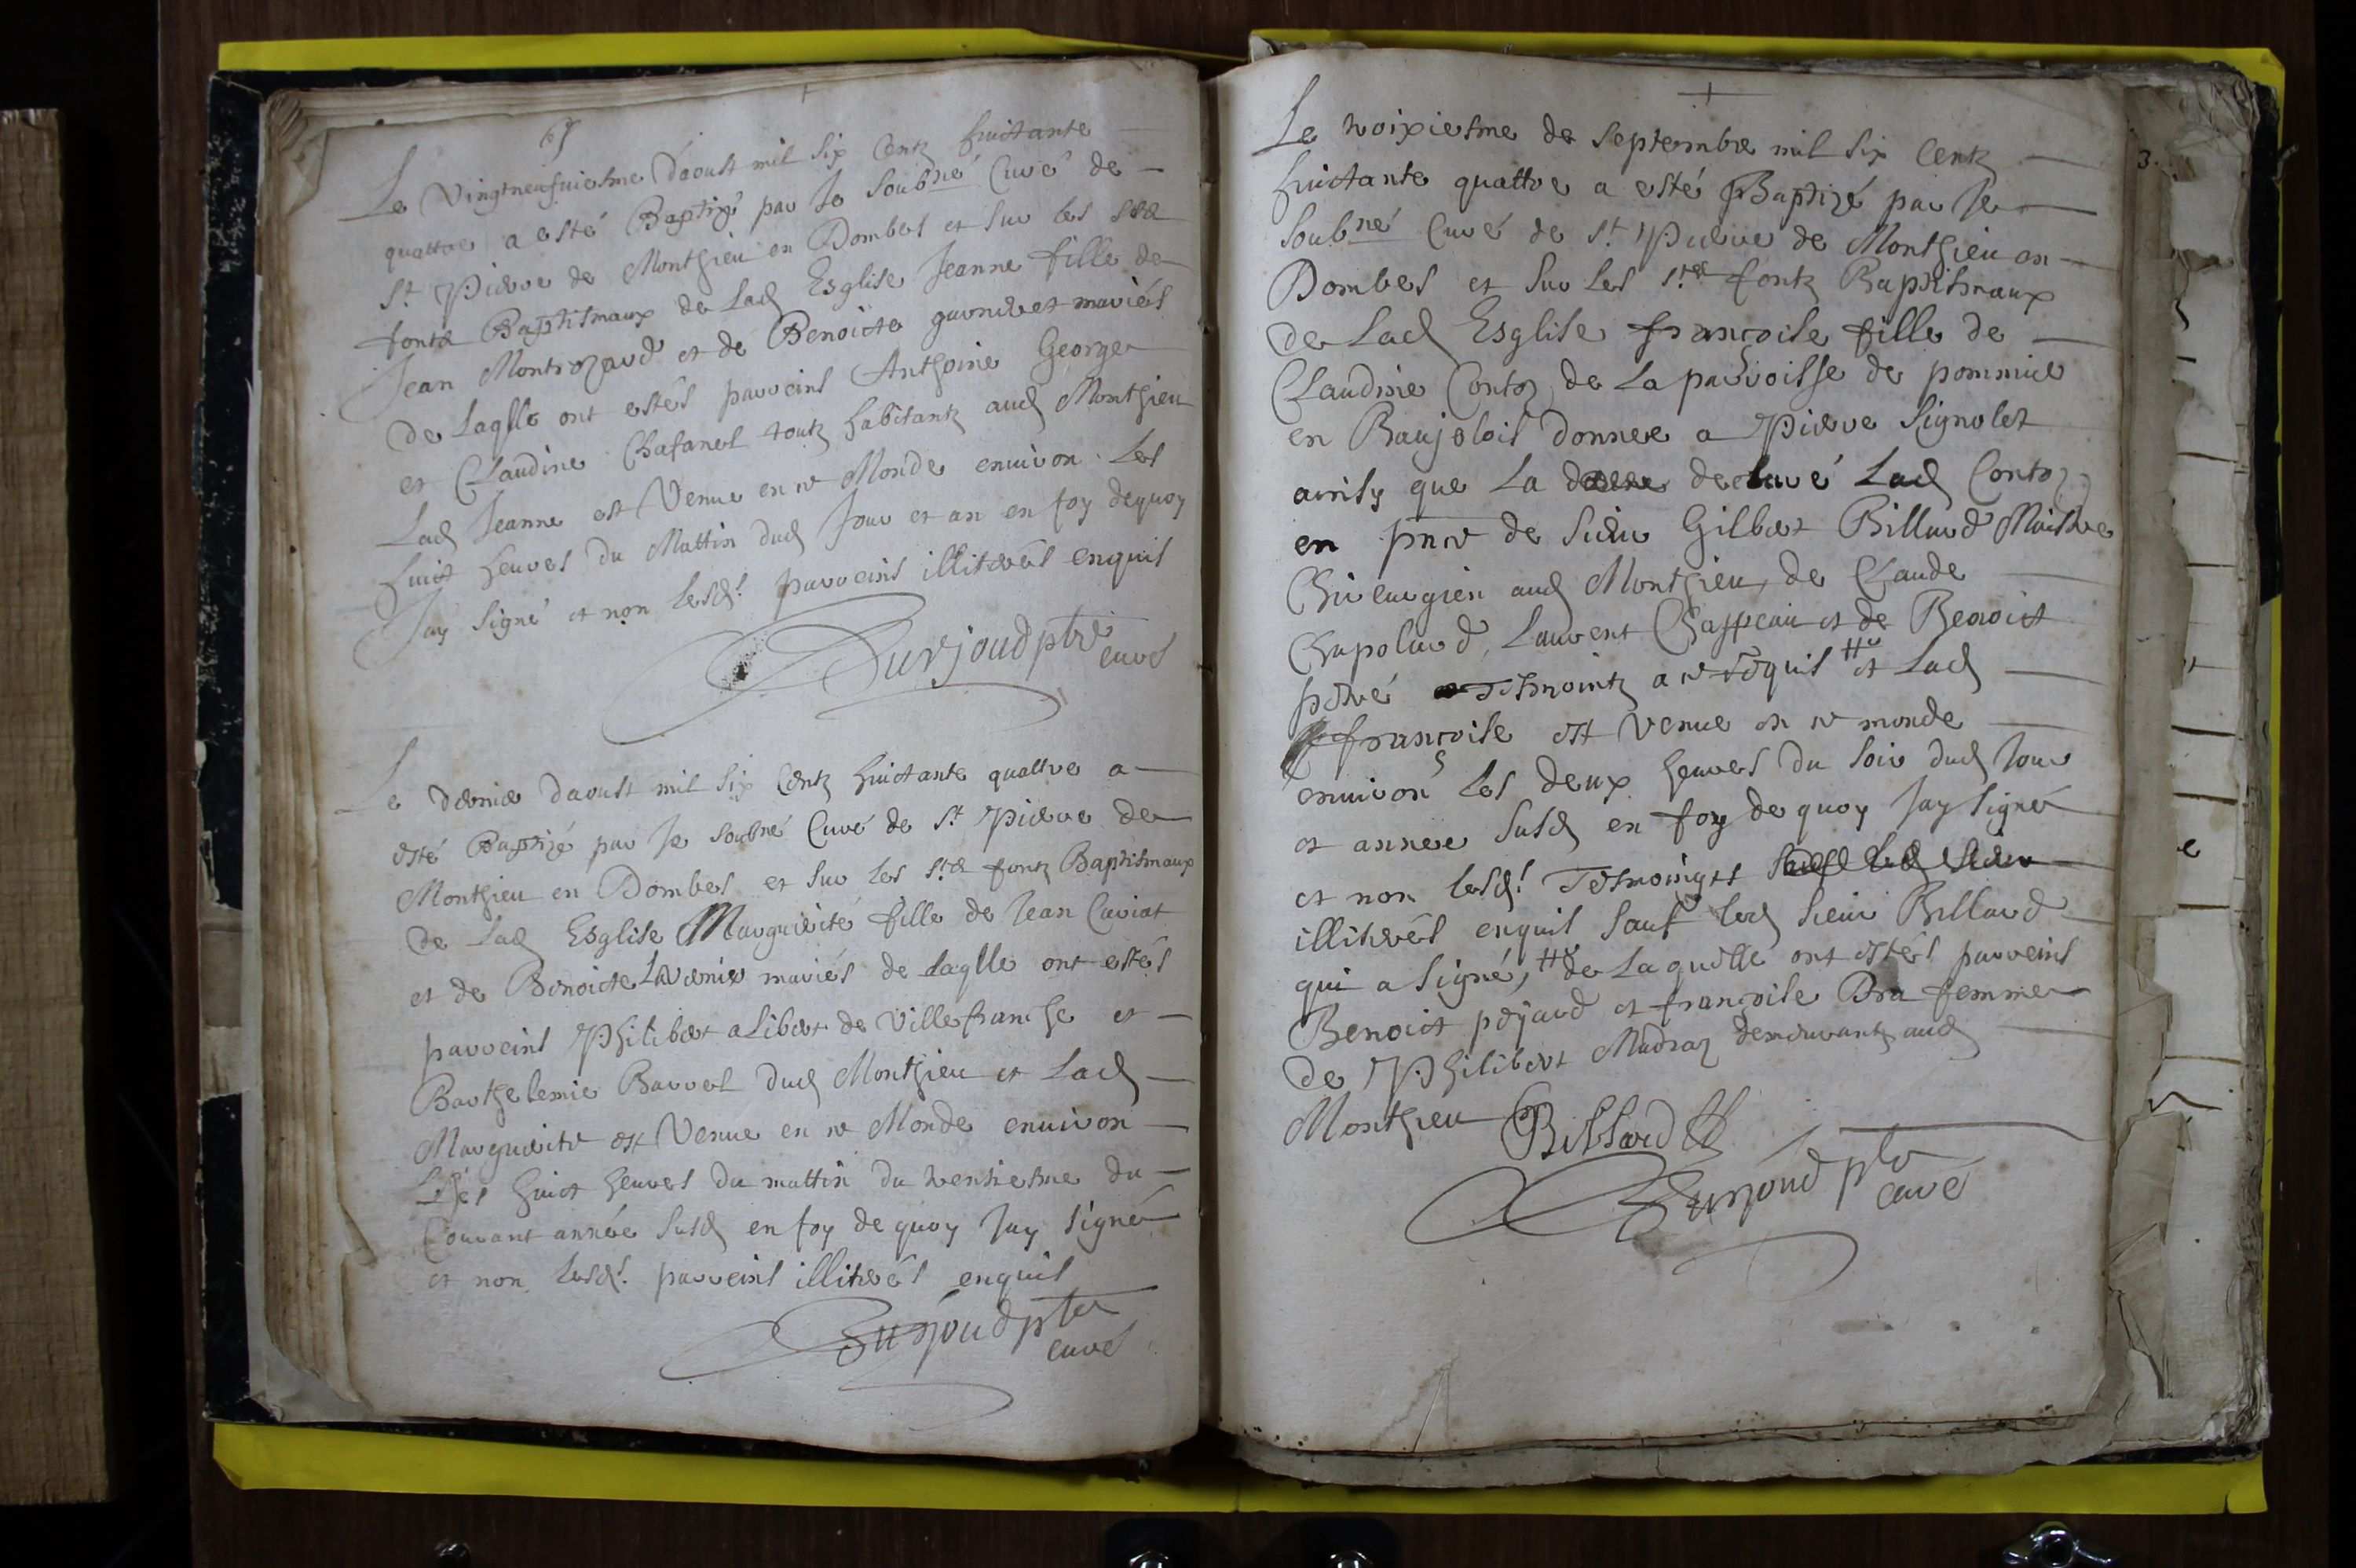 Le Vingtneufuiesme daoust mil six Centz huictante
quattre a esté Baptizé par Je soubné Curé de
St Pierre de Monthieu en Dombes et sur les stes
fontz Baptismaux de Lad Esglise Jeanne fille de
Jean Montrozard et de Benoicte garnier mariés
de Laqlle ont estés parreins Anthoine George
et Claudine Chafanel toutz habitantz aud Monthieu
Lad Jeanne est Venue en ce Monde enuiron Les
huict heures du Mattin dud Jour et an en foy dequoy
Jay signé et non lesds parreins illiterés enquis
Surjoud ptre
curé
Le dernier daoust mil six Centz huictante quattre a
esté Baptizé par Je soubné Curé de St Pierre de
Monthieu en Dombes et sur les stes fontz Baptismaux
de Lad Esglise Marguerite fille de Jean Cariat
et de Benoicte mariés de Laqlle ont estés
parreins Philibert alibert de Villefranche et
Barthelemie Barrel dud Monthieu et Lad
Marguerite est Venue en ce Monde enuiron
Les huict heures du mattin du trentiesme du
Courant année susd en foy de quoy Jay signé
et non lesds parreins illiterés enquis
Surjoud ptre
curé
Le troixiesme de Septembre mil six Centz
huictante quattre a esté Baptizé par Je
soubné Curé de St Pierre de Monthieu en
Dombes et sur Les stes fontz Baptismaux
de Lad Esglise françoise fille de
Claudine Contoz de La parroisse de pommier
en Baujolois donnee a Pierre Signolet
ainsy que La declaré Lad Contoz
en pnce de Sieur Gilbert Billard Maistre
Chirurgien aud Monthieu, de Claude
Chapolard, Laurent Chappeau et de Benoict
perré Tesmointz a ce reqquis # et Lad
françoise est Venue en ce monde
enuiron Les deux heures du soir dud Jour
et annee susd en foy de quoy Jay signé
et non lesds Tesmoings
illiterés enquis sauf led sieur Billard
qui a signé, # de Laquelle ont estés parreins
Benoict pejard et françoise Bra femme
de Philibert Madraz demeurantz aud
Monthieu Billard
Surjoud ptre
curé